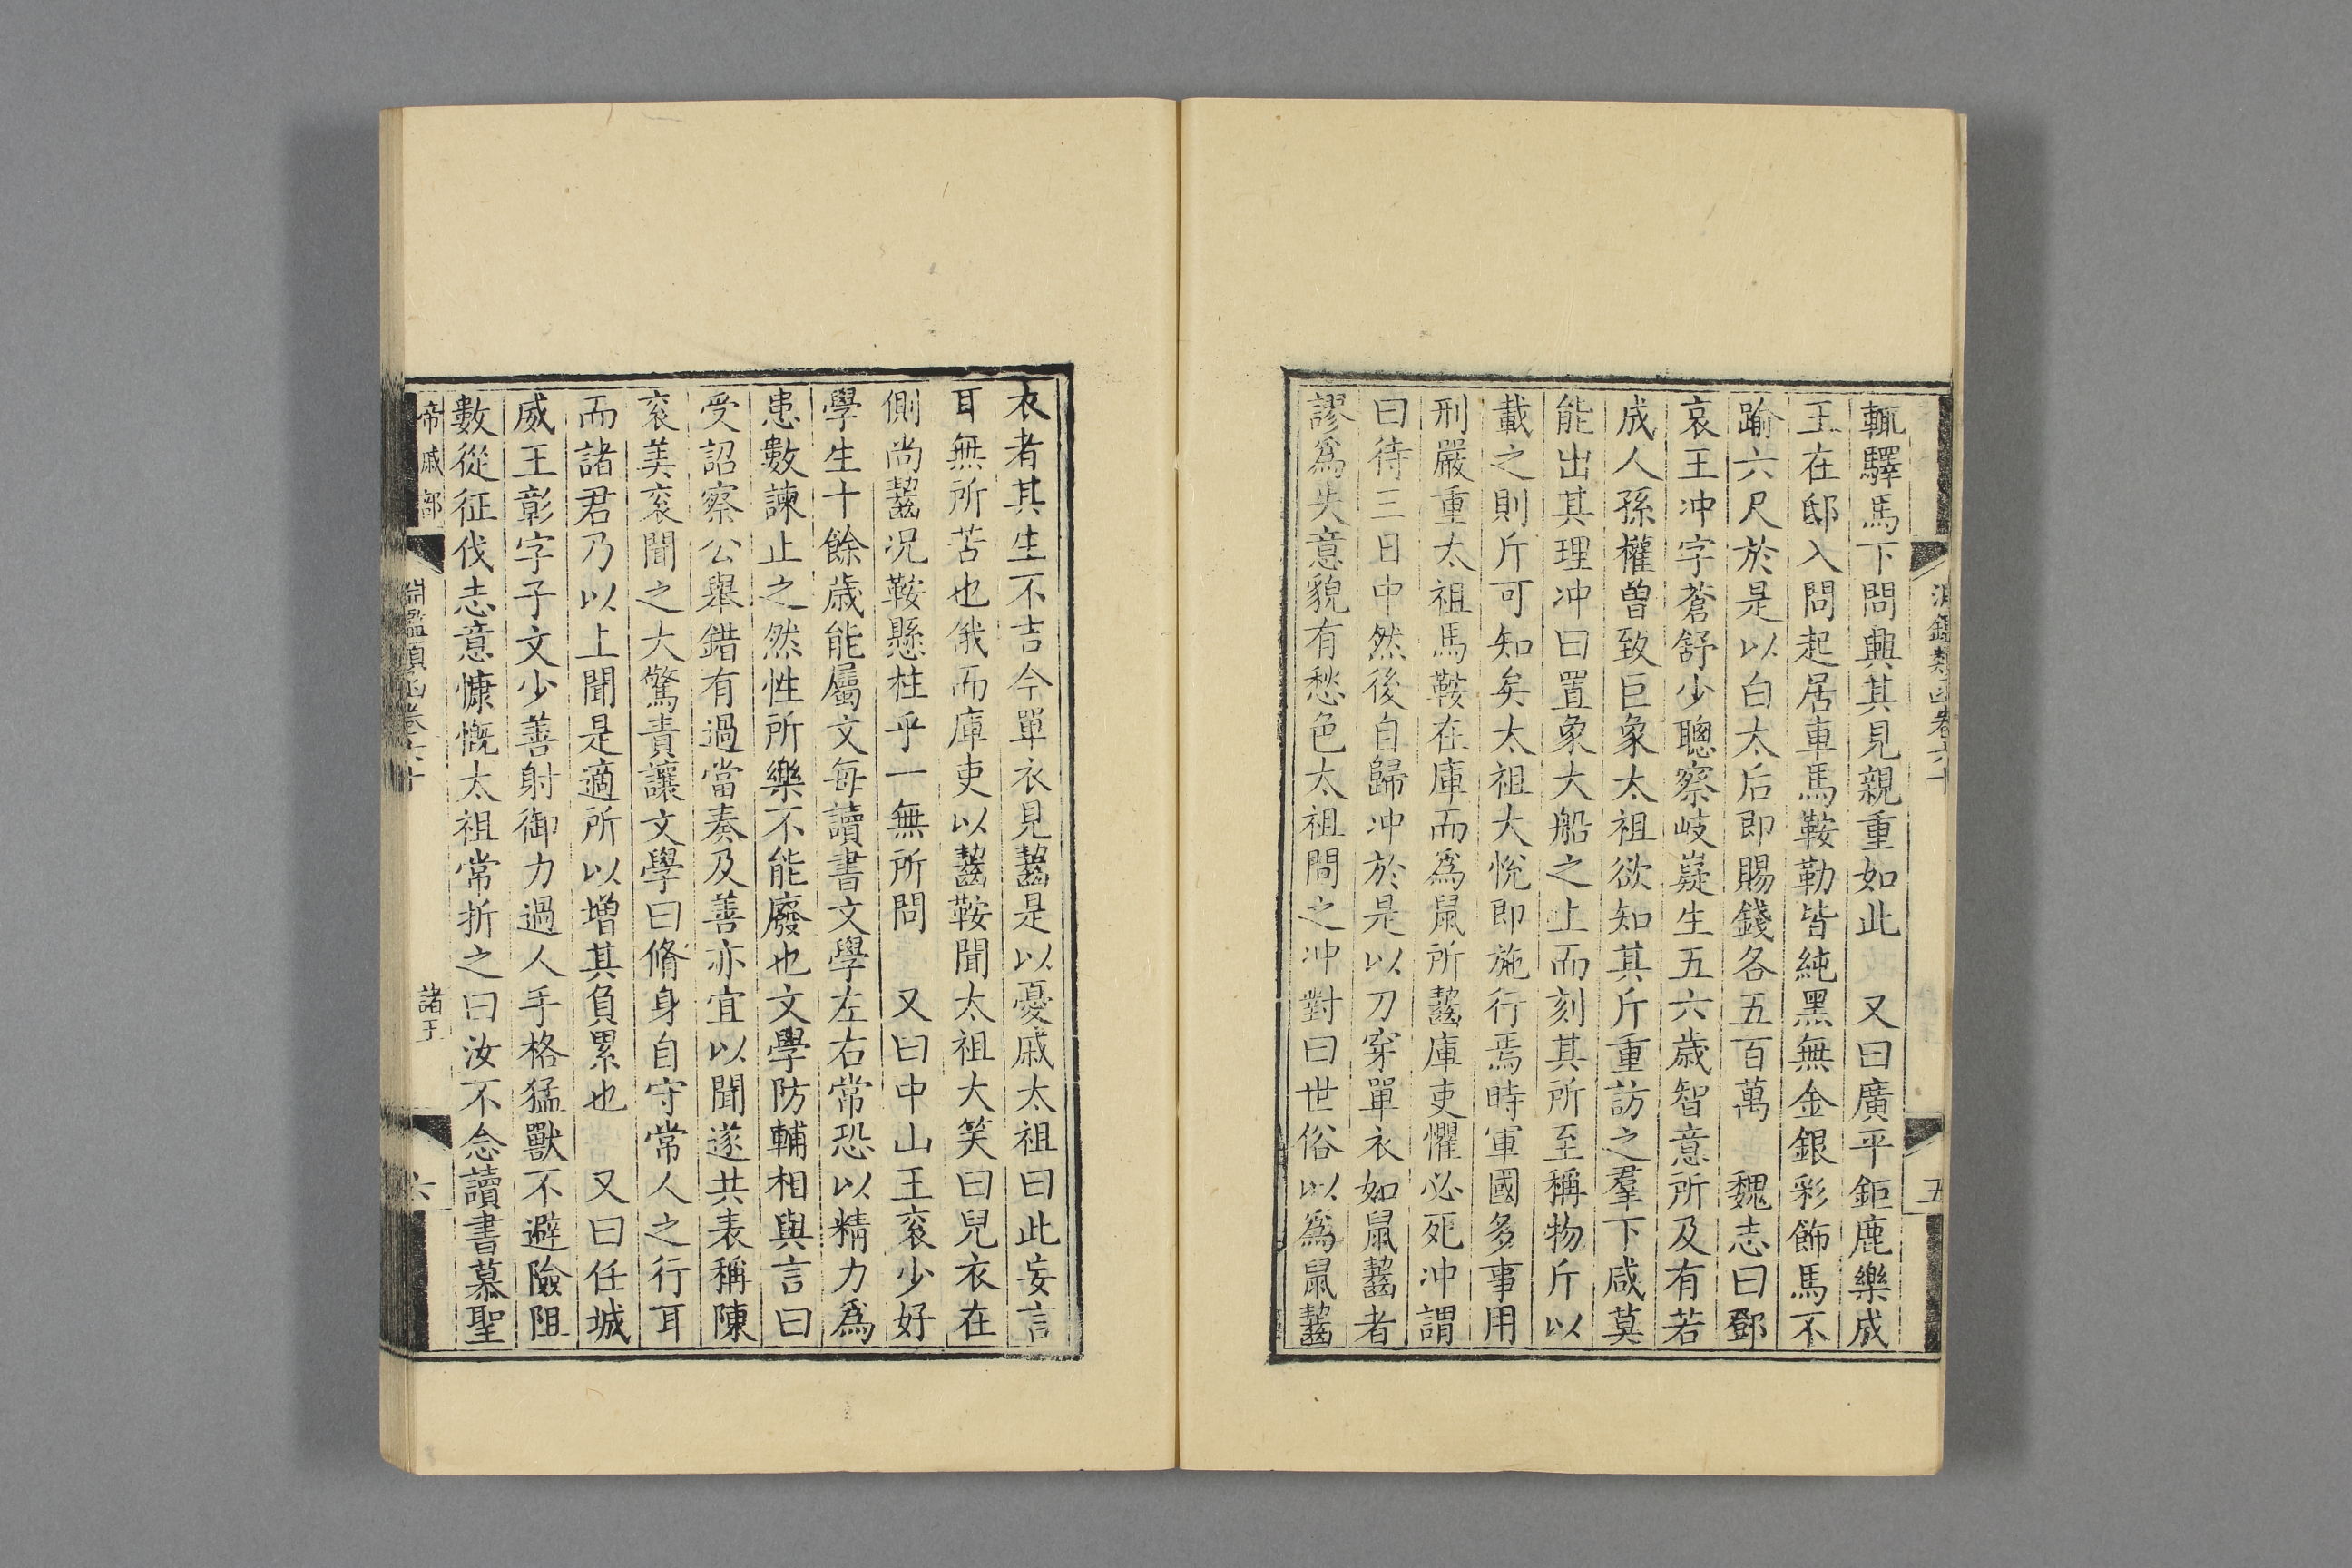 淵鑑類函卷六十
五
輒驛馬下問興其見親重如此 又曰廣平鉅鹿樂成
王在邸入問起居車馬鞍勒皆純黑無金銀彩飾馬不
踰六尺於是以白太后即賜錢各五百萬 魏志曰鄧
哀王冲字蒼舒少聰察岐嶷生五六歲智意所及有若
成人孫權曾致巨象太祖欲知其斤重訪之羣下咸莫
能出其理冲曰置象大船之上而刻其所至稱物斤以
載之則斤可知矣太祖大悅即施行焉時軍國多事用
刑嚴重太祖馬鞍在庫而爲鼠所齧庫吏懼必死冲謂
曰待三日中然後自歸冲於是以刀穿單衣如鼠齧者
謬爲失意貌有愁色太祖問之冲對曰世俗以爲鼠齧
衣者其生不吉今單衣見齧是以憂戚太祖曰此妄言
耳無所苦也俄而庫吏以齧鞍聞太祖大笑曰兒衣在
側尚齧况鞍懸柱乎一無所問 又曰中山王衮少好
學生十餘歲能屬文每讀書文學左右常恐以精力爲
患數諫止之然性所樂不能廢也文學防輔相與言曰
受詔察公舉錯有過當奏及善亦宜以聞遂共表稱陳
衮美衮聞之大驚責讓文學曰脩身自守常人之行耳
而諸君乃以上聞是適所以增其負累也 又曰任城
威王彰字子文少善射御力過人手格猛獸不避險阻
數從征伐志意慷慨太祖常折之曰汝不念讀書慕聖
帝戚部
淵鑑類函卷六十
諸王
六